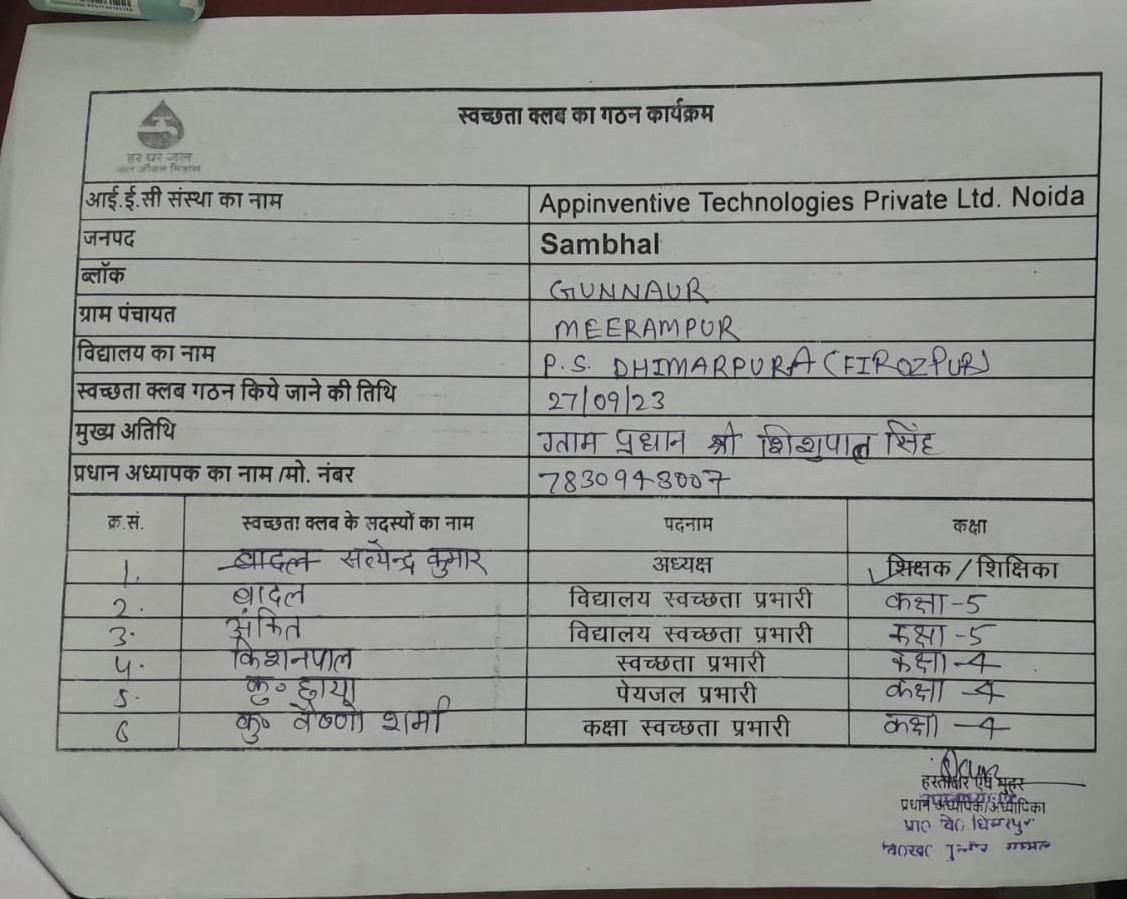 स्वच्छता क्लब का गठन कार्यक्रम
हर घर जल
जल जीवन मिशन
आई.ई.सी संस्था का नाम Appinventive Technologies Private Ltd. Noida
जनपद Sambhal
ब्लॉक GUNNAUR
ग्राम पंचायत MEERAMPUR
विद्यालय का नाम P.S. DHIMARPURA (FIROZPUR)
स्वच्छता क्लब गठन किये जाने की तिथि 27/09/23
मुख्य अतिथि ग्राम प्रधान श्री शिशुपाल सिंह
प्रधान अध्यापक का नाम /मो. नंबर 7830948007
क्र.सं. स्वच्छता क्लब के सदस्यों का नाम पदनाम कक्षा
1. बादल सत्येन्द्र कुमार अध्यक्ष शिक्षक / शिक्षिका
2. बादल विद्यालय स्वच्छता प्रभारी कक्षा -5
3. अंकित विद्यालय स्वच्छता प्रभारी कक्षा -5
4. किशनपाल स्वच्छता प्रभारी कक्षा -4
5. कु० छाया पेयजल प्रभारी कक्षा -4
6 कु० वैष्णो शर्मा कक्षा स्वच्छता प्रभारी कक्षा -4
हस्ताक्षर एवं मुहर
प्रधान अध्यापक/अध्यापिका